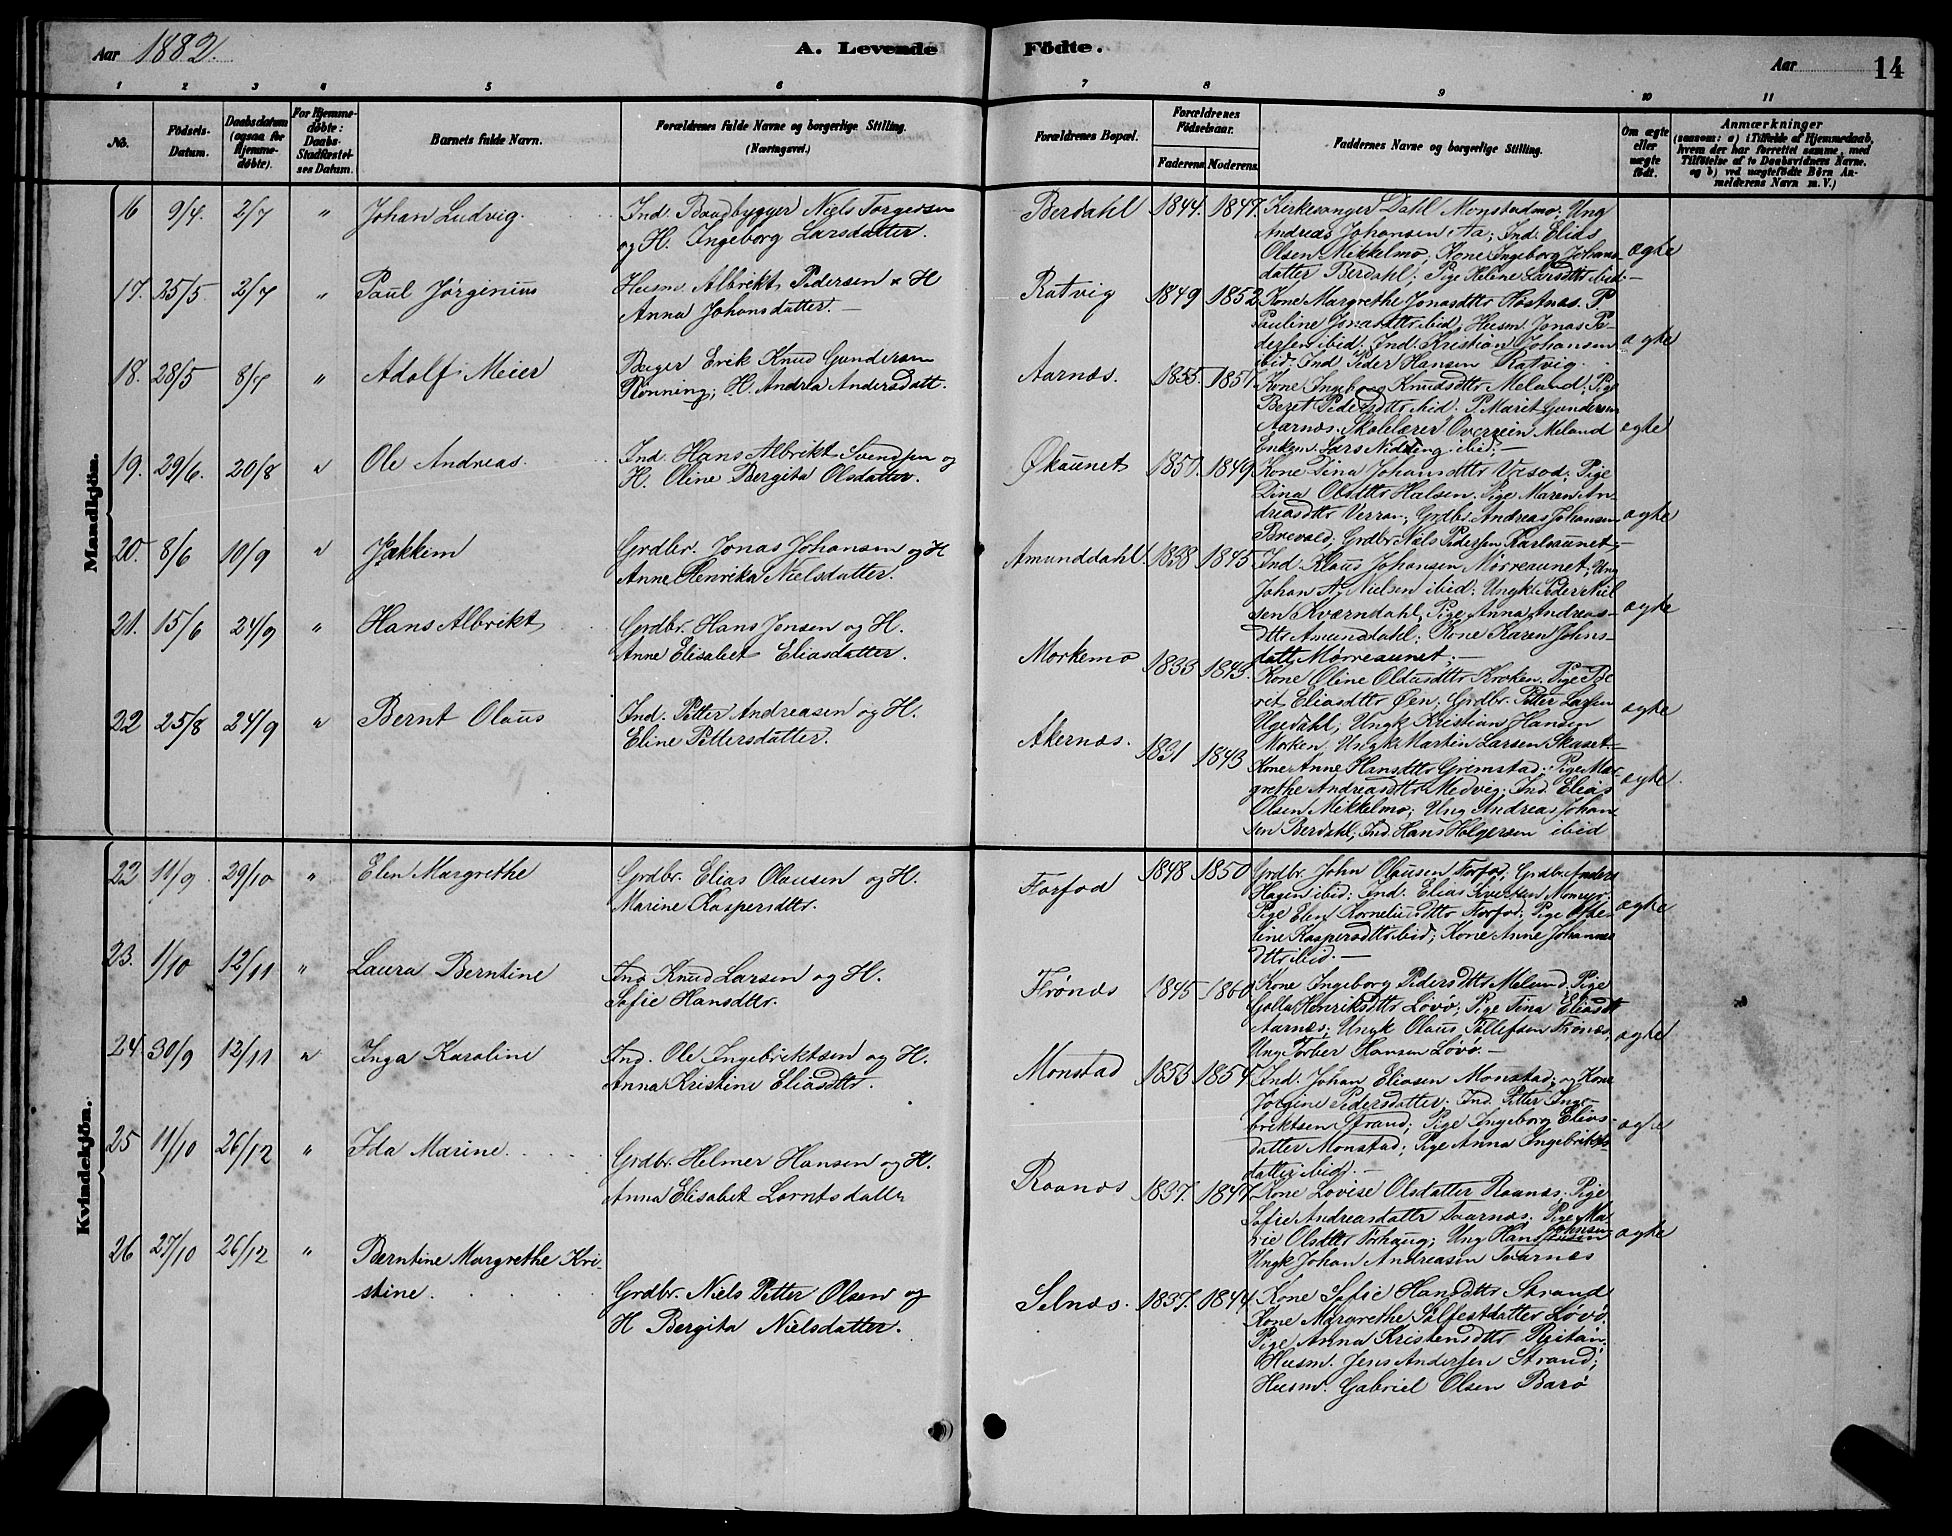 Aar 1882.
A. Levende Födte.
Aar
14
1 2 3 4 5 6 7 8 9 10 11
No.
Födsels-Datum.
Daabsdatum (ogsaa for Hjemmedøbte).
For Hjemmedøbte: Daabs-Stadfæstelses Datum.
Barnets fulde Navn.
Forældrenes fulde Navne og borgerlige Stilling. (Næringsvei.)
Forældrenes Bopæl.
Forældrenes Fødselsaar.
Faderens. Moderens.
Faddernes Navne og borgerlige Stilling.
Om ægte eller uægte födt.
Anmærkninger
(saasom: a) i Tilfælde af Hjemmedaab, hvem der har forrettet samme, med Tilföielse af to Daabsvidners Navne, og b) ved uægtefödte Börn Anmelderens Navn m. V.)
Mandkjön.
16 9/4 2/7 " Johan Ludvig.
Ind. Baadbygger Niels Torgersen
og H. Ingeborg Larsdatter.
Berdahl 1844. 1847.
Kirkesanger Dahl Monstadmo; Ung
Andreas Johansen Aa; Ind. Elias
Olsen Mikkelmo, Kone Ingeborg Johans
datter Berdahl; Pige Helene Larsdttr ibid
ægte
17. 25/5 2/7 " Paul Jørginius
Husm. Albrikt Pedersen & H
Anna Johansdatter.
Ratvig 1849 1852
Kone Margrethe Jonasdttr Høstnæs. P
Pauline Jonasdttr ibid, Husm. Jonas Pe-
dersen ibid. Ind. Kristian Johansen
ibid. Ind. Peder Hansen Ratvig
ægte
18. 28/5 8/7 " Adolf Meier
Erik Knud Gundersen
Rønning; H. Andrea Andersdatt.
Aarnæs. 1855. 1851
Kone Ingeborg Knudsdttr Meland; Pige
Beret Pedersdttr ibid. P. Marit Gundersen
Aarnæs. Skolelærer Overrein Meland
Enkem. Lars Nidding ibid.
ægte
19. 29/6. 20/8 " Ole Andreas.
Ind. Hans Albrikt Svendsen og
H. Oline Bergita Olsdatter.
Økaunet 1850. 1849
Kone Dina Johansdttr Væsod; Pige
Dina Olsdttr Halsen. Pige Maren An-
dreasdttr Verran; Grdbr. Andreas Johansen
Brevold; Grdbr Niels Pedersen Karlsaunet;
ægte
20. 8/6 10/9 " Jakkim
Grdbr. Jonas Johansen og H
Anne Henrika Nielsdatter.
Amunddahl. 1838 1845
Ind. Klaus Johansen Mørreaunet; Ung
Johan A. Nielsen ibid; Ungk Peder Niel
sen Kværndahl; Pige Anna Andreas-
dttr Amunddahl; Kone Karen Johns-
datt Mørreaunet;
ægte
21. 15/6 24/9 " Hans Albrikt
Grdbr. Hans Jonsen og H.
Anne Elisabet Eliasdatter.
Morkemo 1833 1843.
Kone Oline Oldusdttr Kroken. Pige Be
ret Eliasdttr Øen; Grdbr. Petter Larsen
Ugedahl; Ungk Kristian Hansen
Morken. Ungk Martin Larsen Skaset
ægte
22 25/8 24/9 " Bernt Olaus
Ind. Petter Andreasen og H.
Eline Pettersdatter.
Akernæs. 1831 1843
Kone Anne Hansdttr Grimstad; Pige Mar
grethe Andreasdttr Medvig; Ind. Elias
Olsen Mikkelmo; Ung Andreas Johan
sen Berdahl; Ind. Hans Holgersen ibid
ægte.
Kvindekjön.
22 11/9 29/10 " Elen Margrethe
Grdbr. Elias Olausen og H.
Marine Kaspersdttr.
Forfod 1848 1850
Grdbr. John Olausen Forfod; Grdbr. Anders
Hagen ibid; Ind. Elias Sivertsen Monmyr;
Pige Elen Korneliusdttr Forfod; Pige
line Kaspersdttr ibid; Kone Anne Johannes
dttr ibid.
ægte
23. 1/10 12/11 " Laura Berntine
Ind Knud Larsen og H.
Sofie Hansdttr.
Frønæs 1845 1860
Kone Ingeborg Pedersdttr Meland; Pige
Golla Henriksdttr Løvø; Pige Tina Eliasdt
Aarnæs; Ungk Olaus Tollefsen Frønæs,
Ung Torber Hansen Løvø.
ægte
24. 30/9 12/11 " Inga Karoline
Ind. Ole Ingebriktsen og H.
Anna Kristine Eliasdttr.
Monstad 1853 1854
Ind. Johan Eliasen Monstad; og Kone
Jorgine Pedersdatter. Ind. Petter Inge-
briktsen Strand; Pige Ingeborg Elias-
datter Monstad; Pige Anna Ingebrikts
datter ibid.
ægte
25 11/10 26/12 " Ida Marine.
Grdbr. Helmer Hansen og H.
Anna Elisabet Lorntsdatter
Raanæs 1837. 1847
Kone Lovise Olsdatter Raanæs; Pige
Sofie Andreasdatter Taarnæs; Pige Ma
rie Olsdttr Forhaug; Ung Hans Johnsen
Ungk Johan Andreasen Taarnæs
ægte
26 27/10 26/12 " Berntine Margrethe Kri-
stine.
Grdbr. Niels Petter Olsen og
H Bergita Nielsdatter.
Selnæs. 1837. 1844
Kone Sofie Hansdttr Strand
Kone Margrethe Solfestdatter Løvø.
Pige Anna Kristensdttr Reitan;
Husm. Jens Andersen Strand;
Husm. Gabriel Olsen Barø